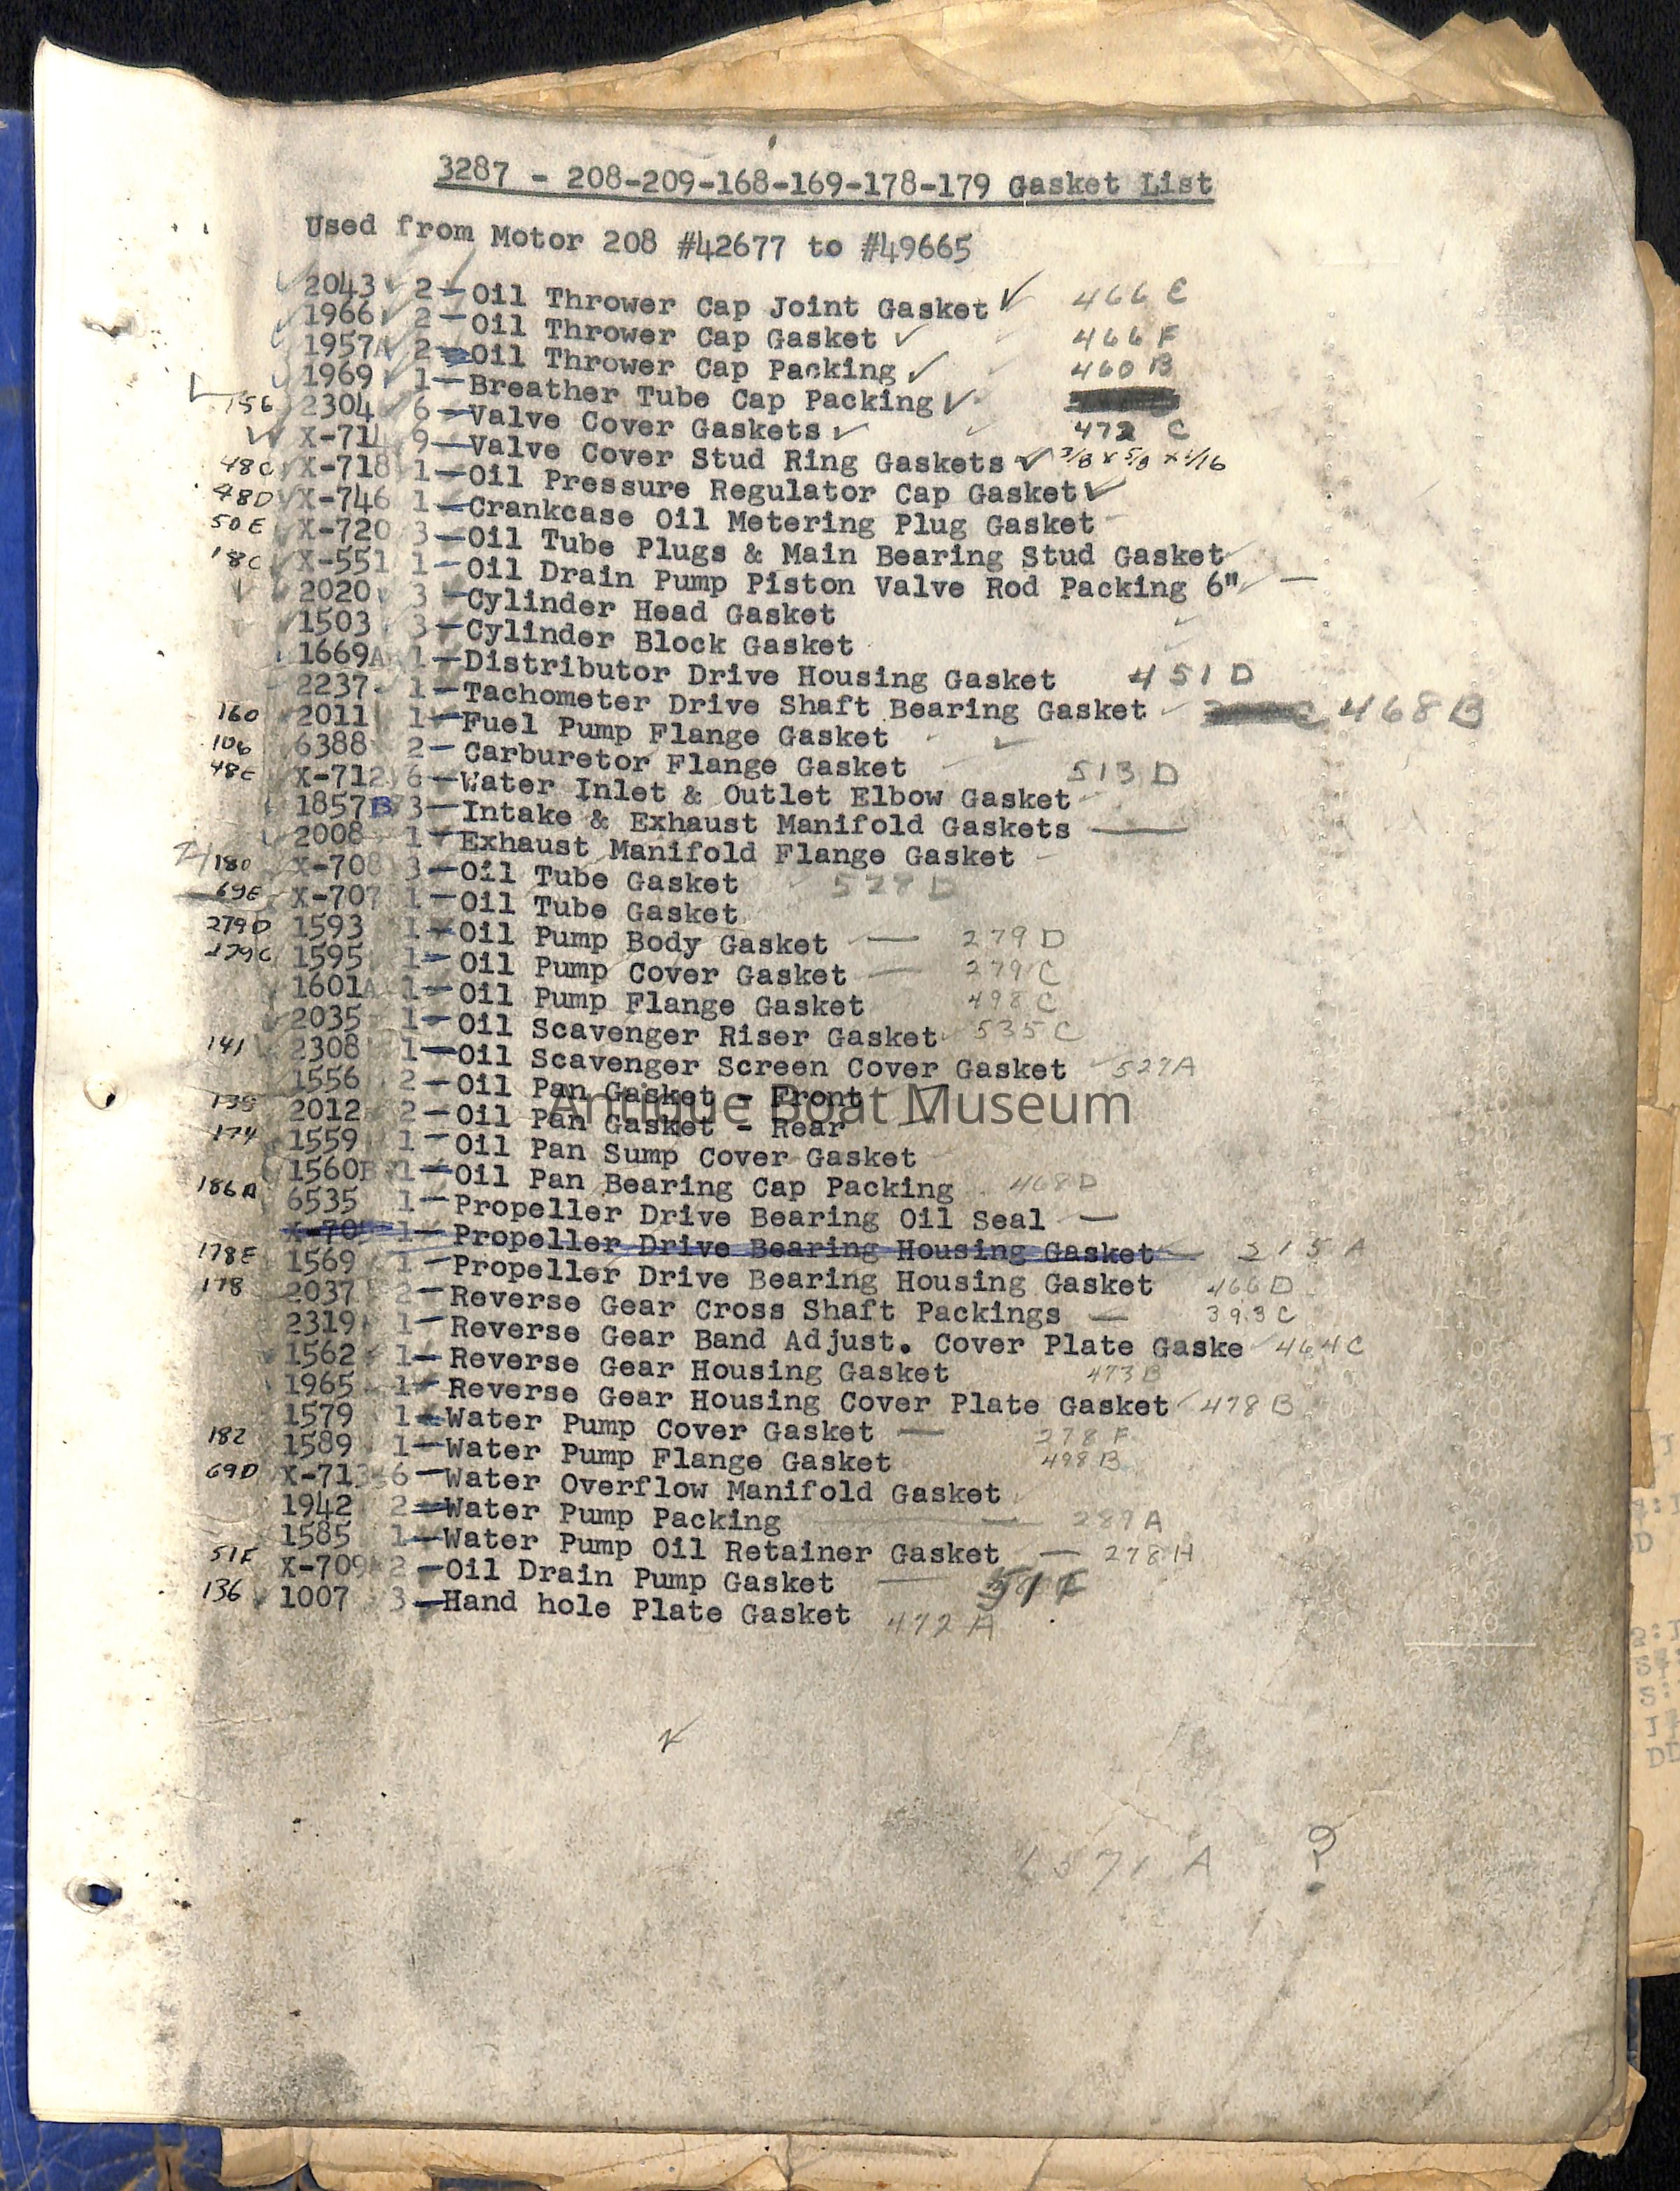 3287 - 208-209-168-169-178-179 Gasket List
Used from Motor 208 #42677 to #49665
2043 2-Oil Thrower Cap Joint Gasket 466 E
1966 2-Oil Thrower Cap Gasket 466 F
1957A 2-Oil Thrower Cap Packing 460 B
1969 1-Breather Tube Cap Packing
156 2304 6-Valve Cover Gaskets 472 C
X-711 9-Valve Cover Stud Ring Gaskets 3/8 x 5/8 x 1/16
48C X-718 1-Oil Pressure Regulator Cap Gasket
48D X-746 1-Crankcase Oil Metering Plug Gasket
50E X-720 3-Oil Tube Plugs & Main Bearing Stud Gasket
18C X-551 1-Oil Drain Pump Piston Valve Rod Packing 6" —
2020 3-Cylinder Head Gasket
1503 3-Cylinder Block Gasket
1669A 1-Distributor Drive Housing Gasket 451 D
2237 1-Tachometer Drive Shaft Bearing Gasket 468 B
160 2011 1-Fuel Pump Flange Gasket
106 6388 2-Carburetor Flange Gasket
48E X-712 6-Water Inlet & Outlet Elbow Gasket 513 D
1857B 3-Intake & Exhaust Manifold Gaskets —
2008 1-Exhaust Manifold Flange Gasket
180 X-708 3-Oil Tube Gasket 528 D
69E X-707 1-Oil Tube Gasket
279D 1593 1-Oil Pump Body Gasket — 279 D
279C 1595 1-Oil Pump Cover Gasket — 279 C
1601A 1-Oil Pump Flange Gasket 498 C
2035 1-Oil Scavenger Riser Gasket 535 C
141 2308 1-Oil Scavenger Screen Cover Gasket 527A
1556 2-Oil Pan Gasket - Front
135 2012 2-Oil Pan Gasket - Rear
Antique Boat Museum
174 1559 1-Oil Pan Sump Cover Gasket
1560B 1-Oil Pan Bearing Cap Packing 468 D
186A 6535 1-Propeller Drive Bearing Oil Seal —
1-Propeller Drive Bearing Housing Gasket 215 A
178E 1569 1-Propeller Drive Bearing Housing Gasket 466 D
178 2037 2-Reverse Gear Cross Shaft Packings — 393 C
2319 1-Reverse Gear Band Adjust. Cover Plate Gaske 464 C
1562 1-Reverse Gear Housing Gasket 473 B
1965 1-Reverse Gear Housing Cover Plate Gasket 478 B
1579 1-Water Pump Cover Gasket — 278 F
182 1589 1-Water Pump Flange Gasket 498 B
69D X-713 6-Water Overflow Manifold Gasket
1942 2-Water Pump Packing — 289 A
1585 1-Water Pump Oil Retainer Gasket — 278 H
51F X-709 2-Oil Drain Pump Gasket —
136 1007 3-Hand hole Plate Gasket 472 A
1571 A ?